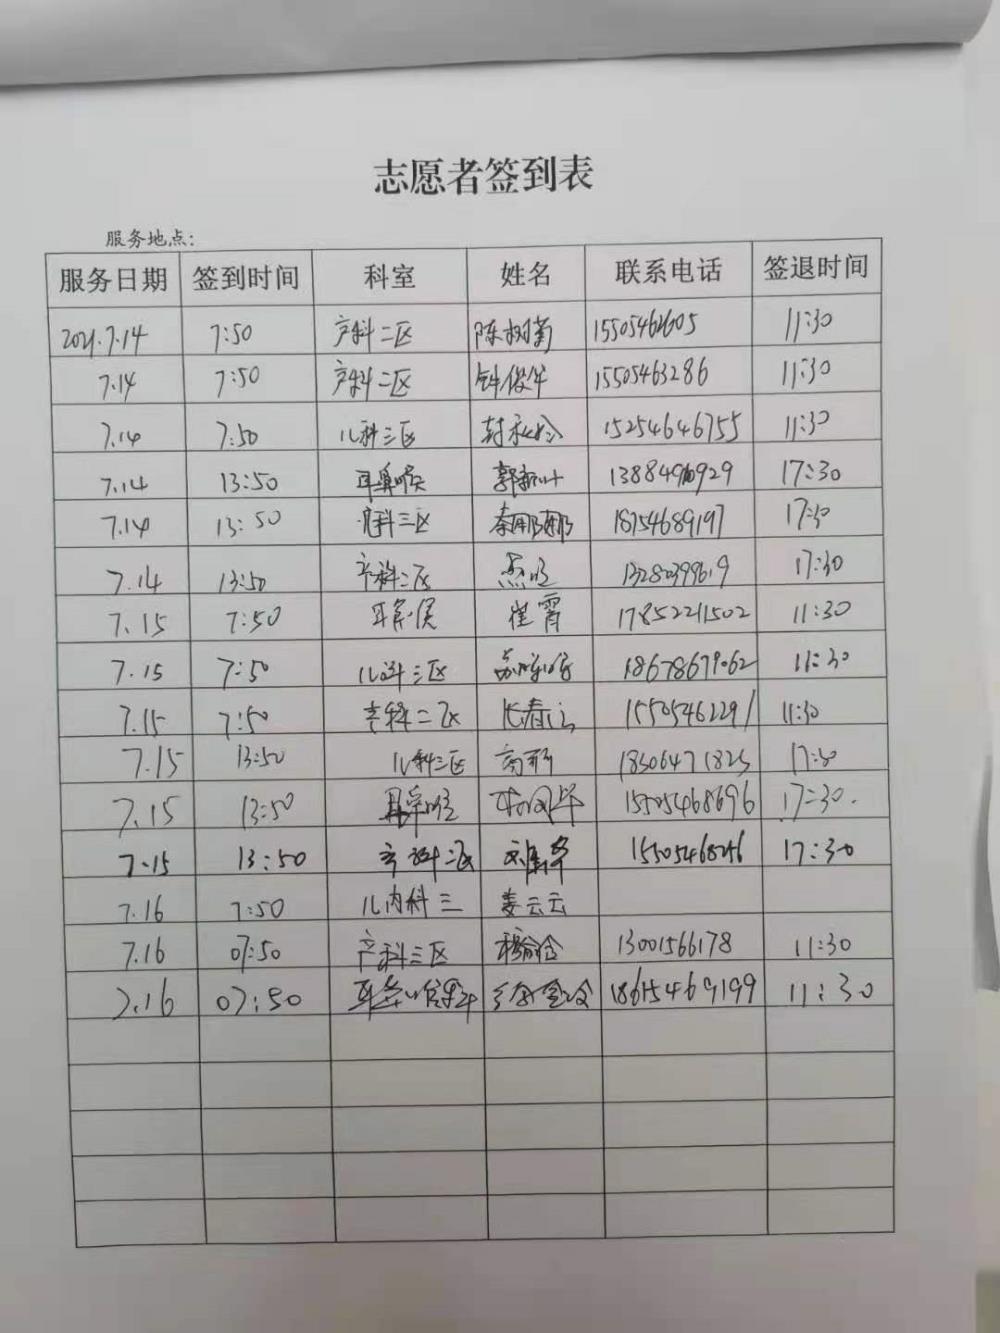 志愿者签到表
服务地点:
服务日期 签到时间 科室 姓名 联系电话 签退时间
2021.7.14 7:50 产科二区 陈树菊 15505462605 11:30
7.14 7:50 产科二区 15505463286 11:30
7.14 7:50 儿科三区 15254646755 11:30
7.14 13:50 耳鼻喉 17:30
7.14 13:50 三区 秦娜娜 18754689197 17:30
7.14 13:50 产科二区 17:30
7.15 7:50 崔霄 17852211502 11:30
7.15 7:50 儿科三区 18678679062 11:30
7.15 7:50 产科二区 15505462291 11:30
7.15 13:50 儿科三区 17:30
7.15 13:50 15505468696 17:30.
7.15 13:50 产科二区 17:30
7.16 7:50 儿内科三 姜云云
7.16 07:50 产科三区 13001566178 11:30
7.16 07:50 18615469199 11:30